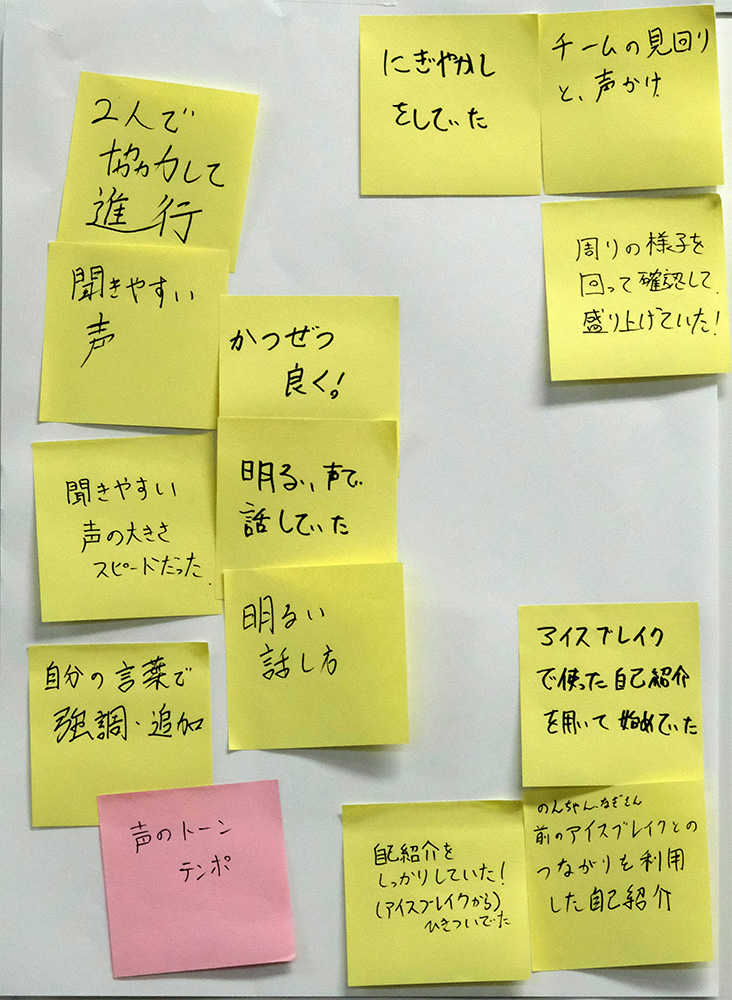 2人で
協力して
進行
聞きやすい
声
かつぜつ
良く!
聞きやすい
声の大きさ
スピードだった.
明るい声で
話していた
明るい
話し方
自分の言葉で
強調・追加
声のトーン
テンポ
にぎやかし
をしていた
チームの見回り
と、声かけ
周りの様子を
回って確認して
盛り上げていた!
アイスブレイク
で使った自己紹介
を用いて始めていた
自己紹介を
しっかりしていた!
(アイスブレイクから)
ひきついでた
のんちゃん、なぎさん
前のアイスブレイクとの
つながりも利用
した自己紹介